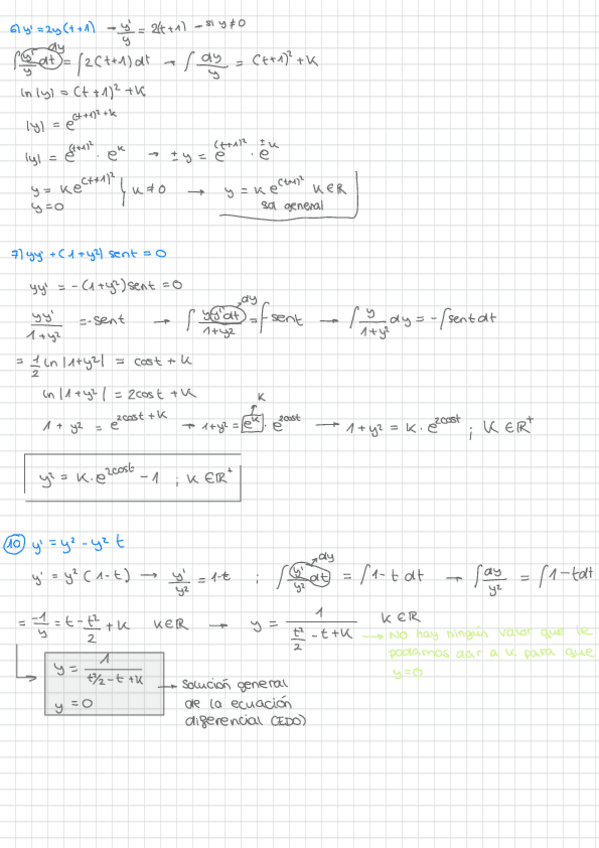 6) y' = 2y(t+1) → y'/y = 2(t+1) → si y≠0
∫ y'/y dt = ∫ 2(t+1) dt → ∫ dy/y = (t+1)² + K
dy
ln|y| = (t+1)² + K
|y| = e^((t+1)²+K)
|y| = e^((t+1)²) · e^K → ±y = e^((t+1)²) · e^(±K)
y = K e^((t+1)²) } K≠0 → y = K e^((t+1)²) K∈ℝ
y=0 sol general
7) yy' + (1+y²) sent = 0
yy' = -(1+y²) sent = 0
yy'/(1+y²) = -sent → ∫ yy'dt/(1+y²) = ∫-sent → ∫ y/(1+y²) dy = -∫sent dt
dy
= 1/2 ln|1+y²| = cost + K
ln|1+y²| = 2cost + K
1+y² = e^(2cost+K) → 1+y² = e^K · e^(2cost) → 1+y² = K · e^(2cost) ; K∈ℝ⁺
K
y² = K·e^(2cost) - 1 ; K∈ℝ⁺
10) y' = y² - y² t
y' = y² (1-t) → y'/y² = 1-t ; ∫ y'/y² dt = ∫1-t dt → ∫ dy/y² = ∫1-tdt
dy
= -1/y = t - t²/2 + K K∈ℝ → y = 1/(t²/2 - t + K) K∈ℝ
→ No hay ningún valor que le
podamos dar a K para que
y=0
y = 1/(t²/2 - t + K)
y = 0
→ solución general
de la ecuación
diferencial (EDO)